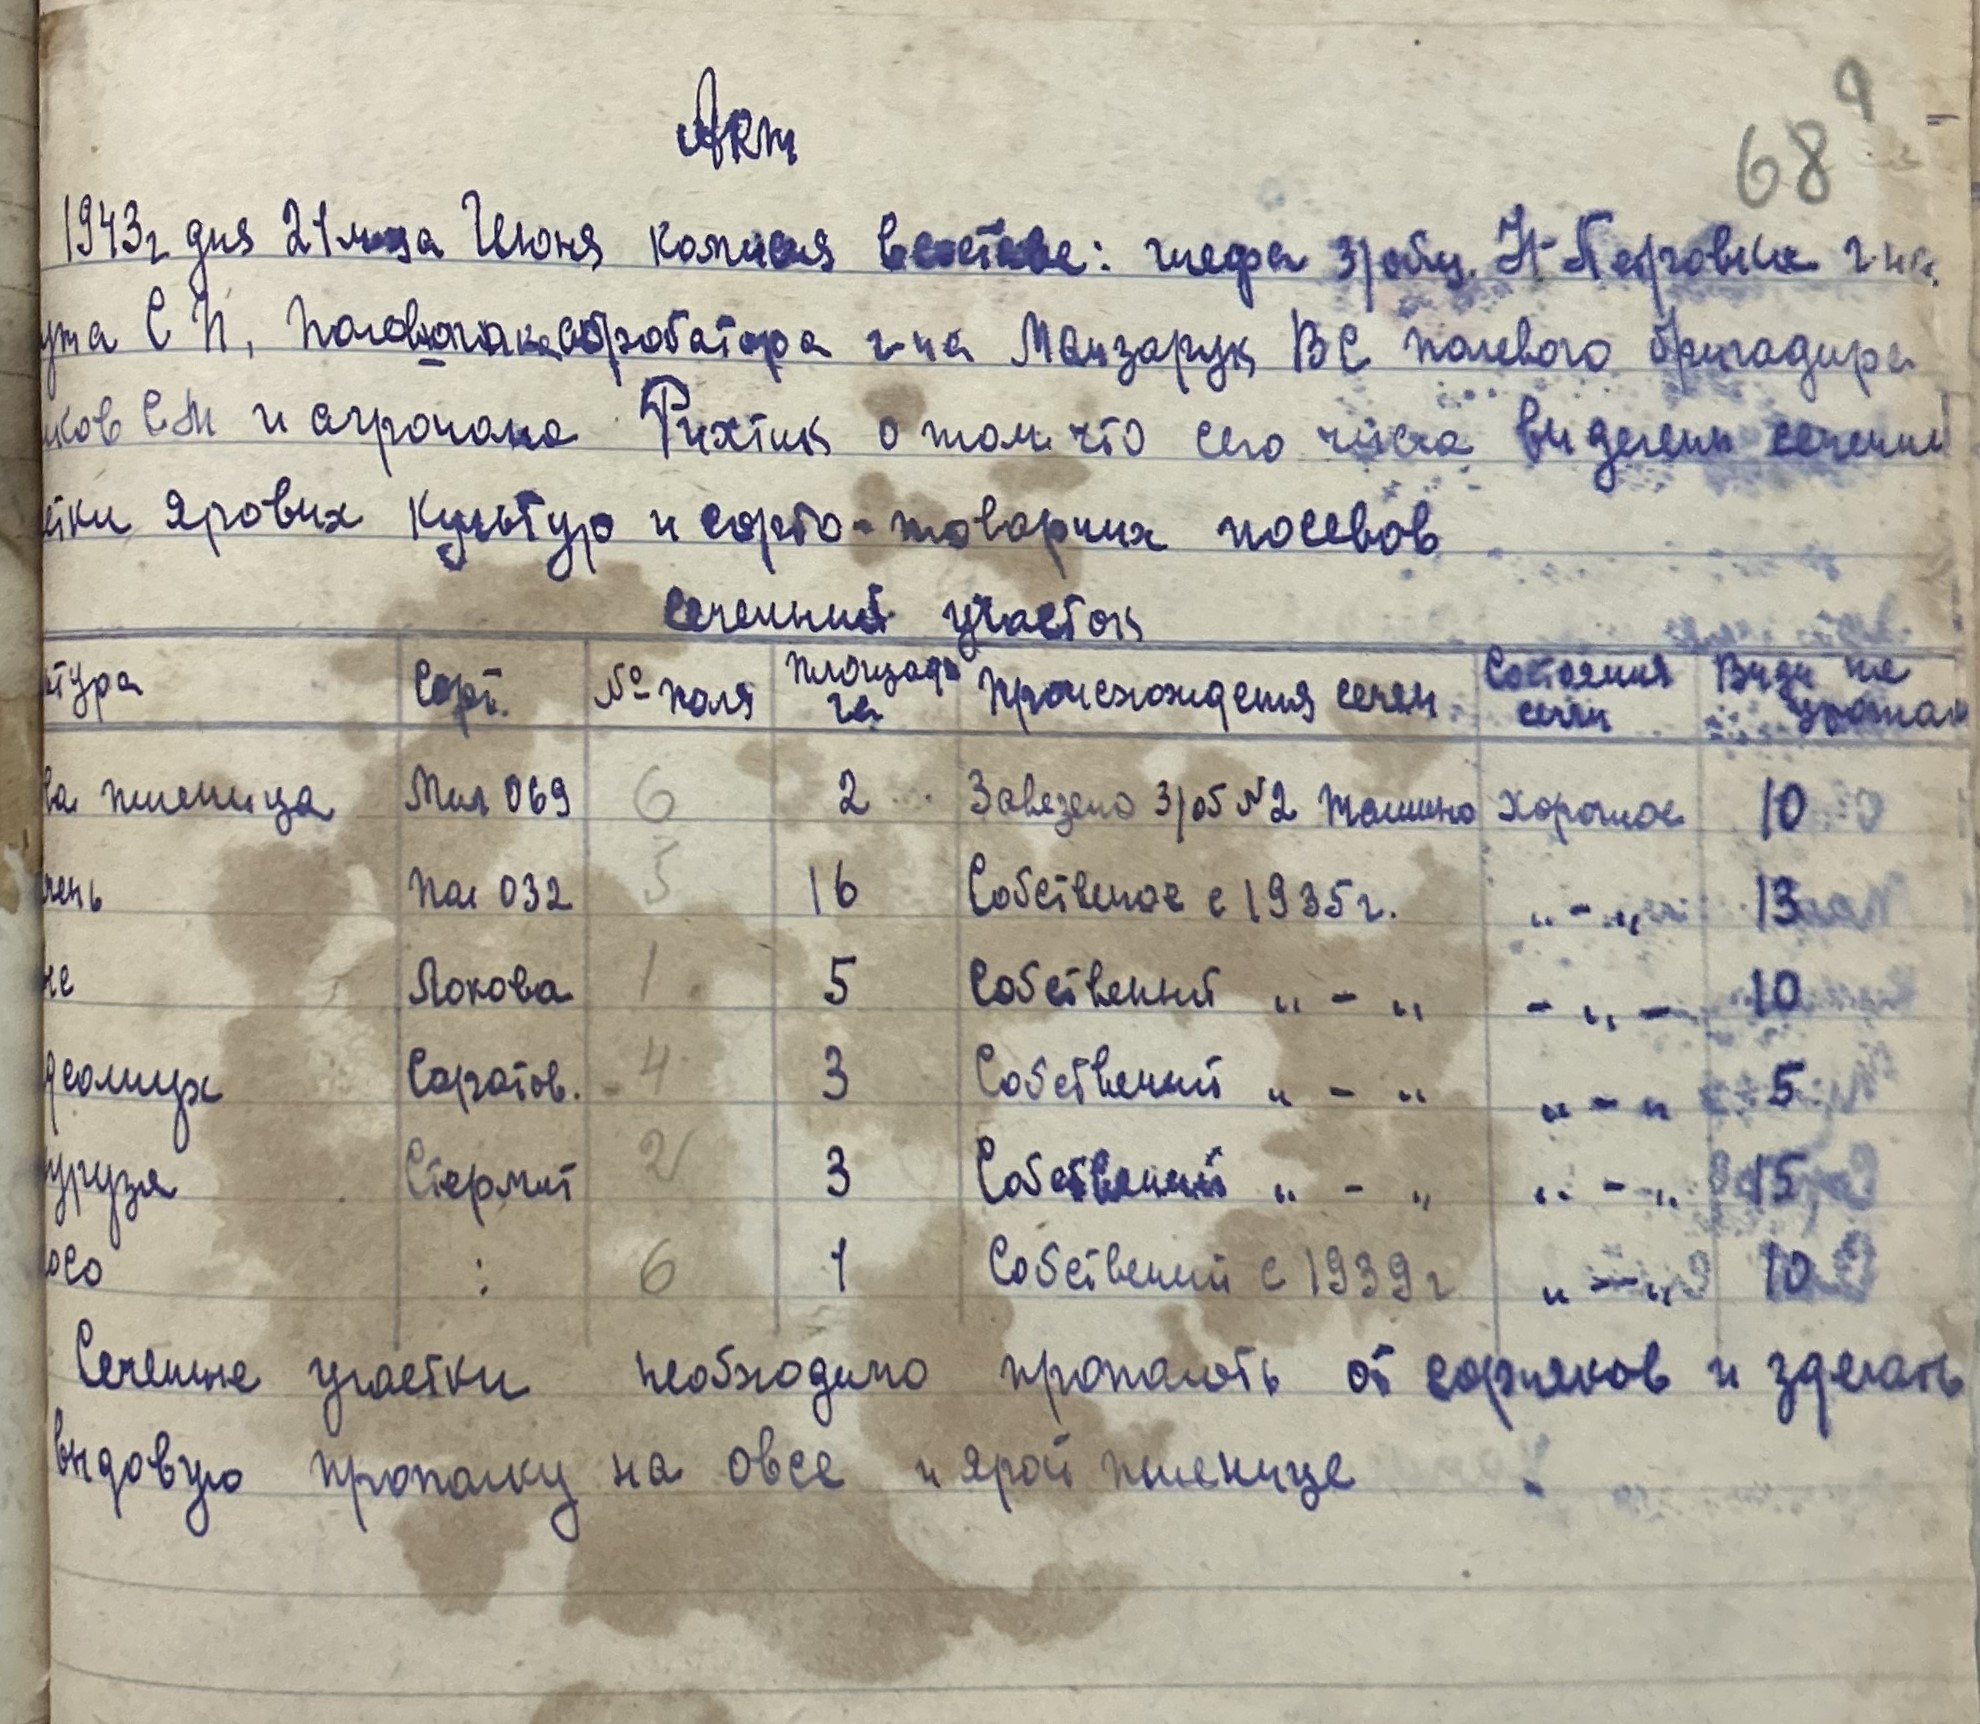 Акт
68
9
1943г дня 21 м-ца Июня комисия в составе: шефа з/общ. Н-Петровки г-на
ута С П, полевого апробатора г-на Манзарук ВС полевого бригадира
ков СМ и агронома Рихтик о том что сего числа виделени семенни
стки ярових культур и сорто-товарних посевов
семенний участок
тура Сорт. № поля площадь га Происхождения семян Состояния семян Види на урожай
ва пшеница Мил 069 6 2 Завезено з/об №2 Хорошое 10
мень Пал 032 5 16 Собственое с 1935г. „ - „ 13
не Лохова 1 5 Собственний „ - „ - „ - 10
дсолнух Саратов. 4 3 Собственний „ - „ „ - „ 5
уруза Стермит 2 3 Собственний „ - „ „ - „ 15
осо : 6 1 Собственний с 1939г „ - „ 10
Семенне участки необходимо пропалоть от сорняков и зделать
выдовую прополку на овсе и ярой пшенице